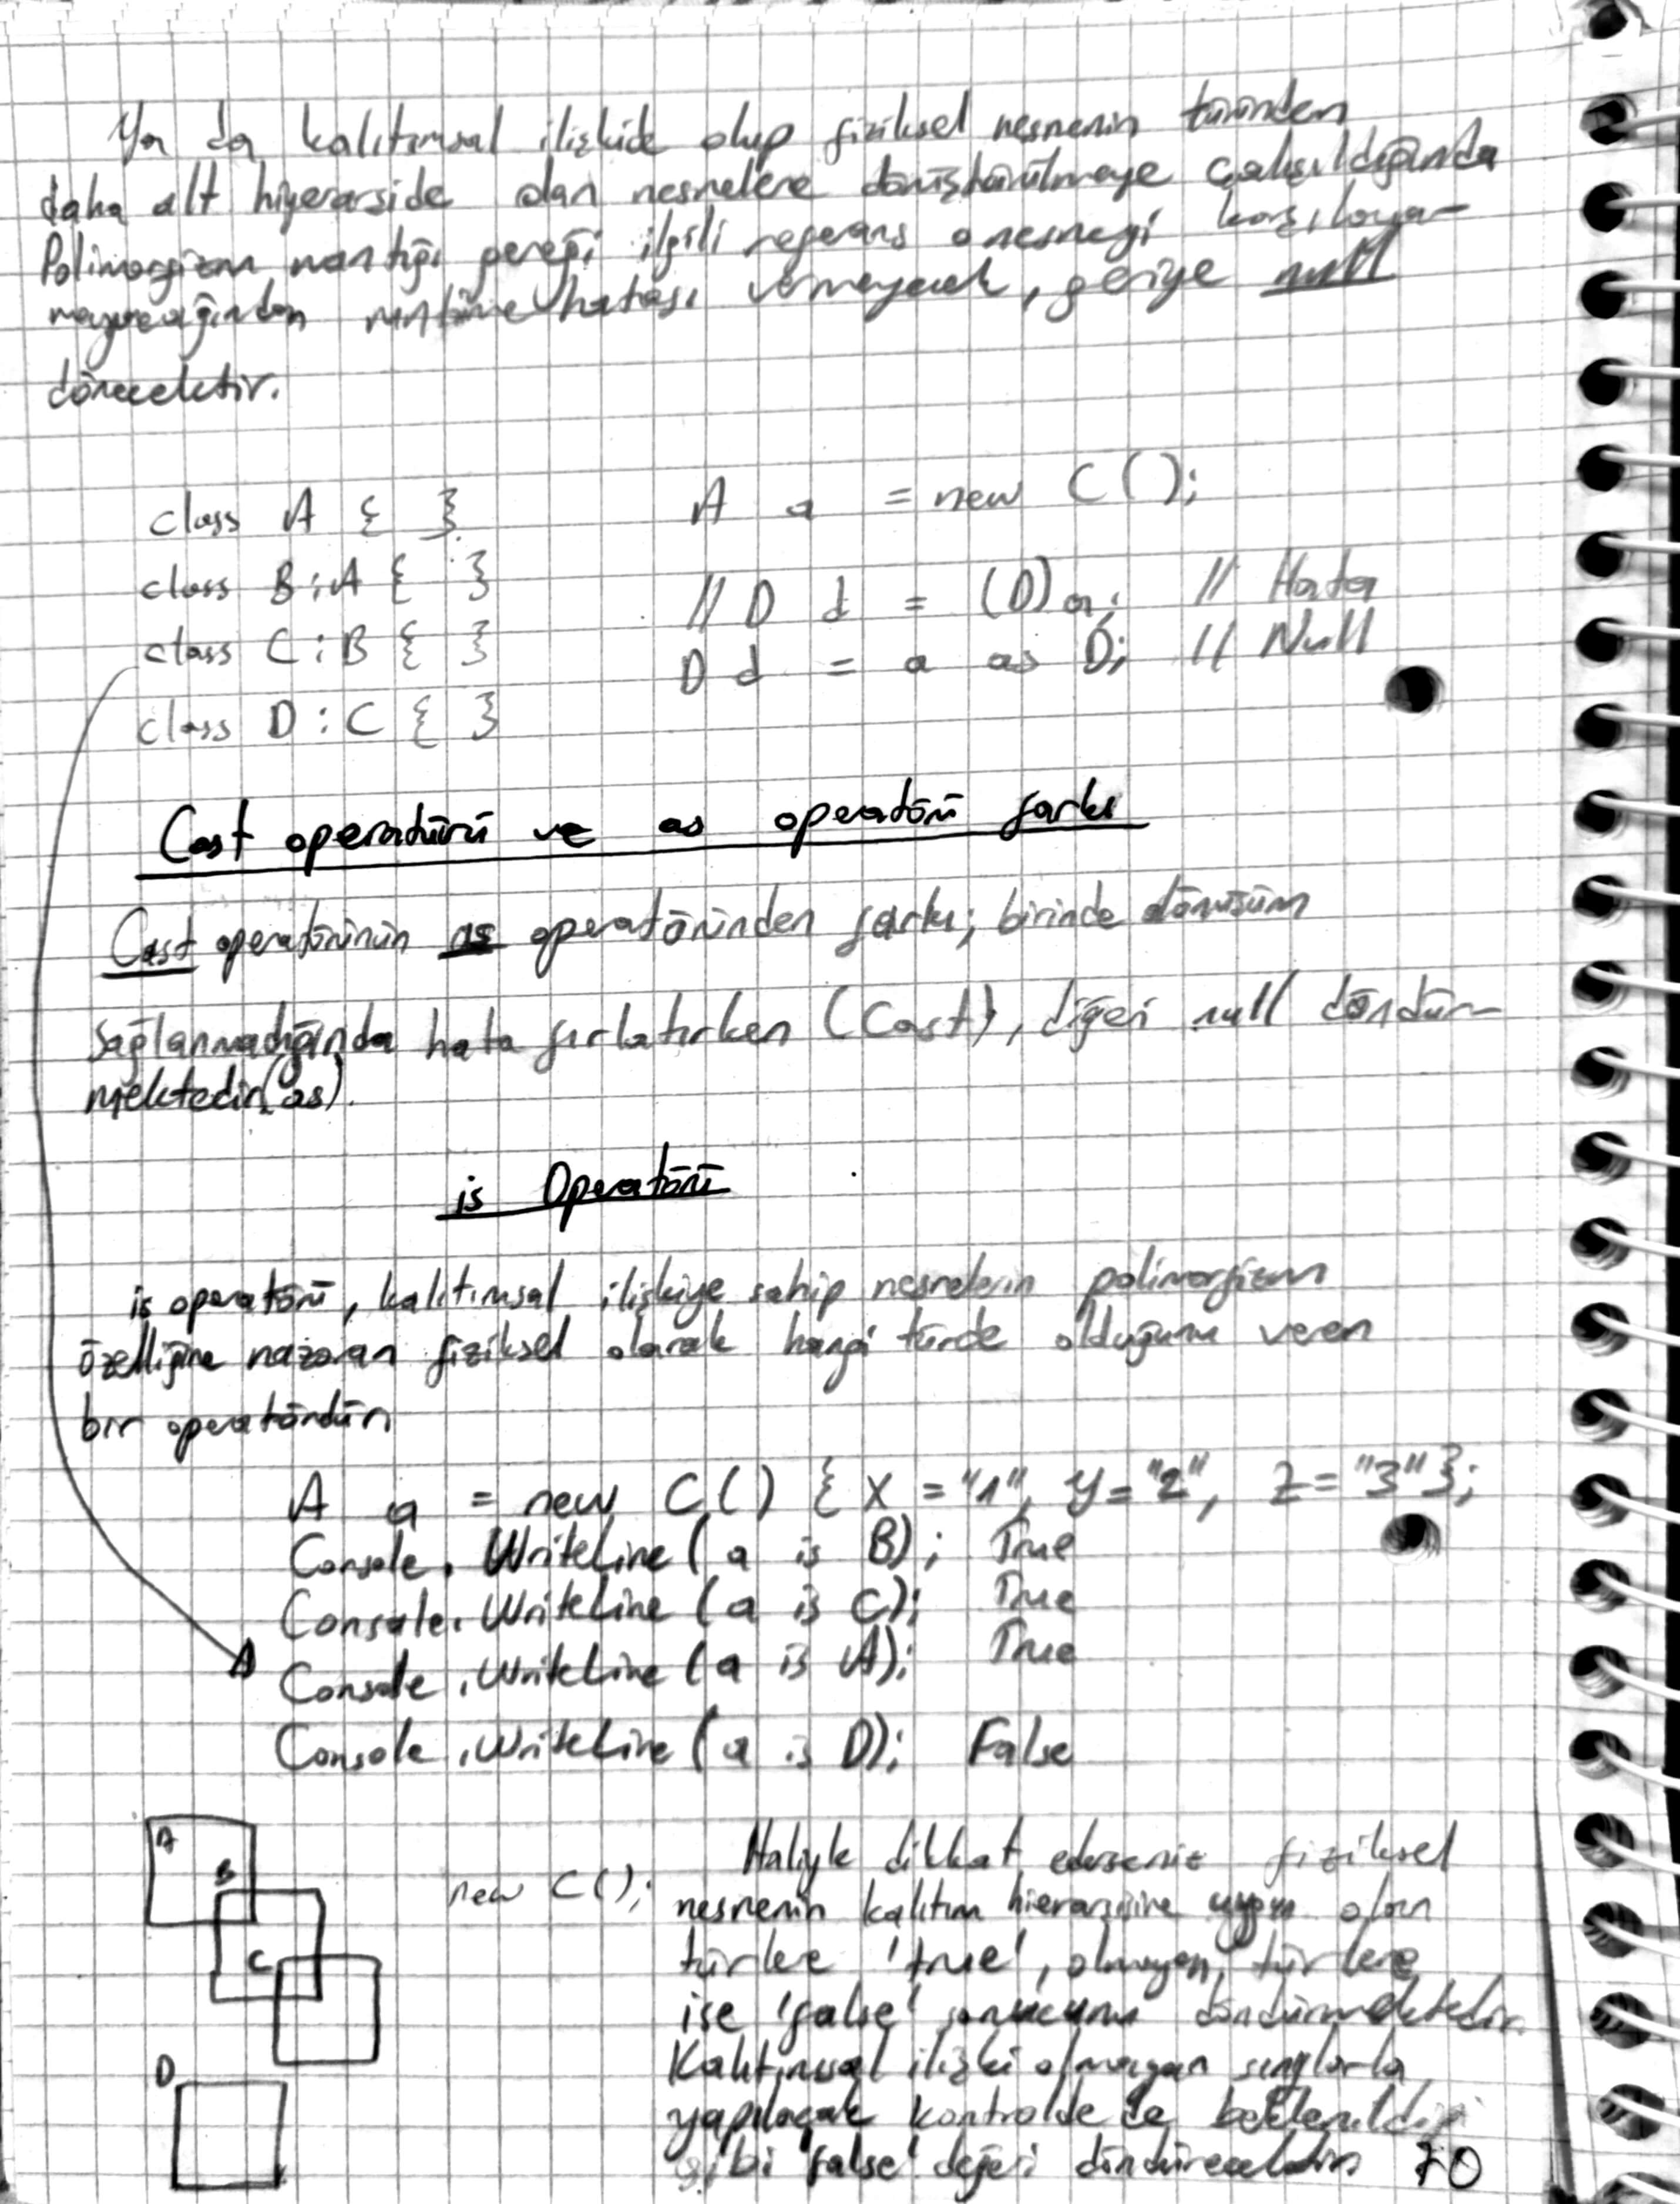 Ya da kalıtımsal ilişkide olup fiziksel nesnenin türünden
daha alt hiyerarşide olan nesnelere dönüştürülmeye çalışıldığında
Polimorfizm mantığı gereği ilgili referans o nesneyi karşılaya-
mayacağından runtime hatası vermeyecek, geriye null
dönecektir.
class A { }
A a = new C();
class B:A { }
// D d = (D)a; // Hata
class C:B { }
D d = a as D; // Null
class D:C { }
Cast operatürü ve as operatörü farkı
Cast operatörünün as operatöründen farkı; birinde dönüşüm
sağlanmadığında hata fırlatırken (Cast), diğeri null döndür-
mektedir(as).
is Operatörü
is operatörü, kalıtımsal ilişkiye sahip nesnelerin polimorfizm
özelliğine nazaran fiziksel olarak hangi türde olduğunu veren
bir operatördür.
A a = new C() { X = "1", Y = "2", Z = "3"};
Console.WriteLine(a is B); True
Console.WriteLine(a is C); True
Console.WriteLine(a is A); True
Console.WriteLine(a is D); False
A
B
C
D
new C();
Haliyle dikkat ederseniz fiziksel
nesnenin kalıtım hierarşisine uygun olan
türlere 'true', olmayan türlere
ise 'false' sonucunu döndürmektedir.
Kalıtımsal ilişki olmayan sınıflarla
yapılacak kontrolde de beklenildiği
gibi 'false' değeri döndürecektir.
70